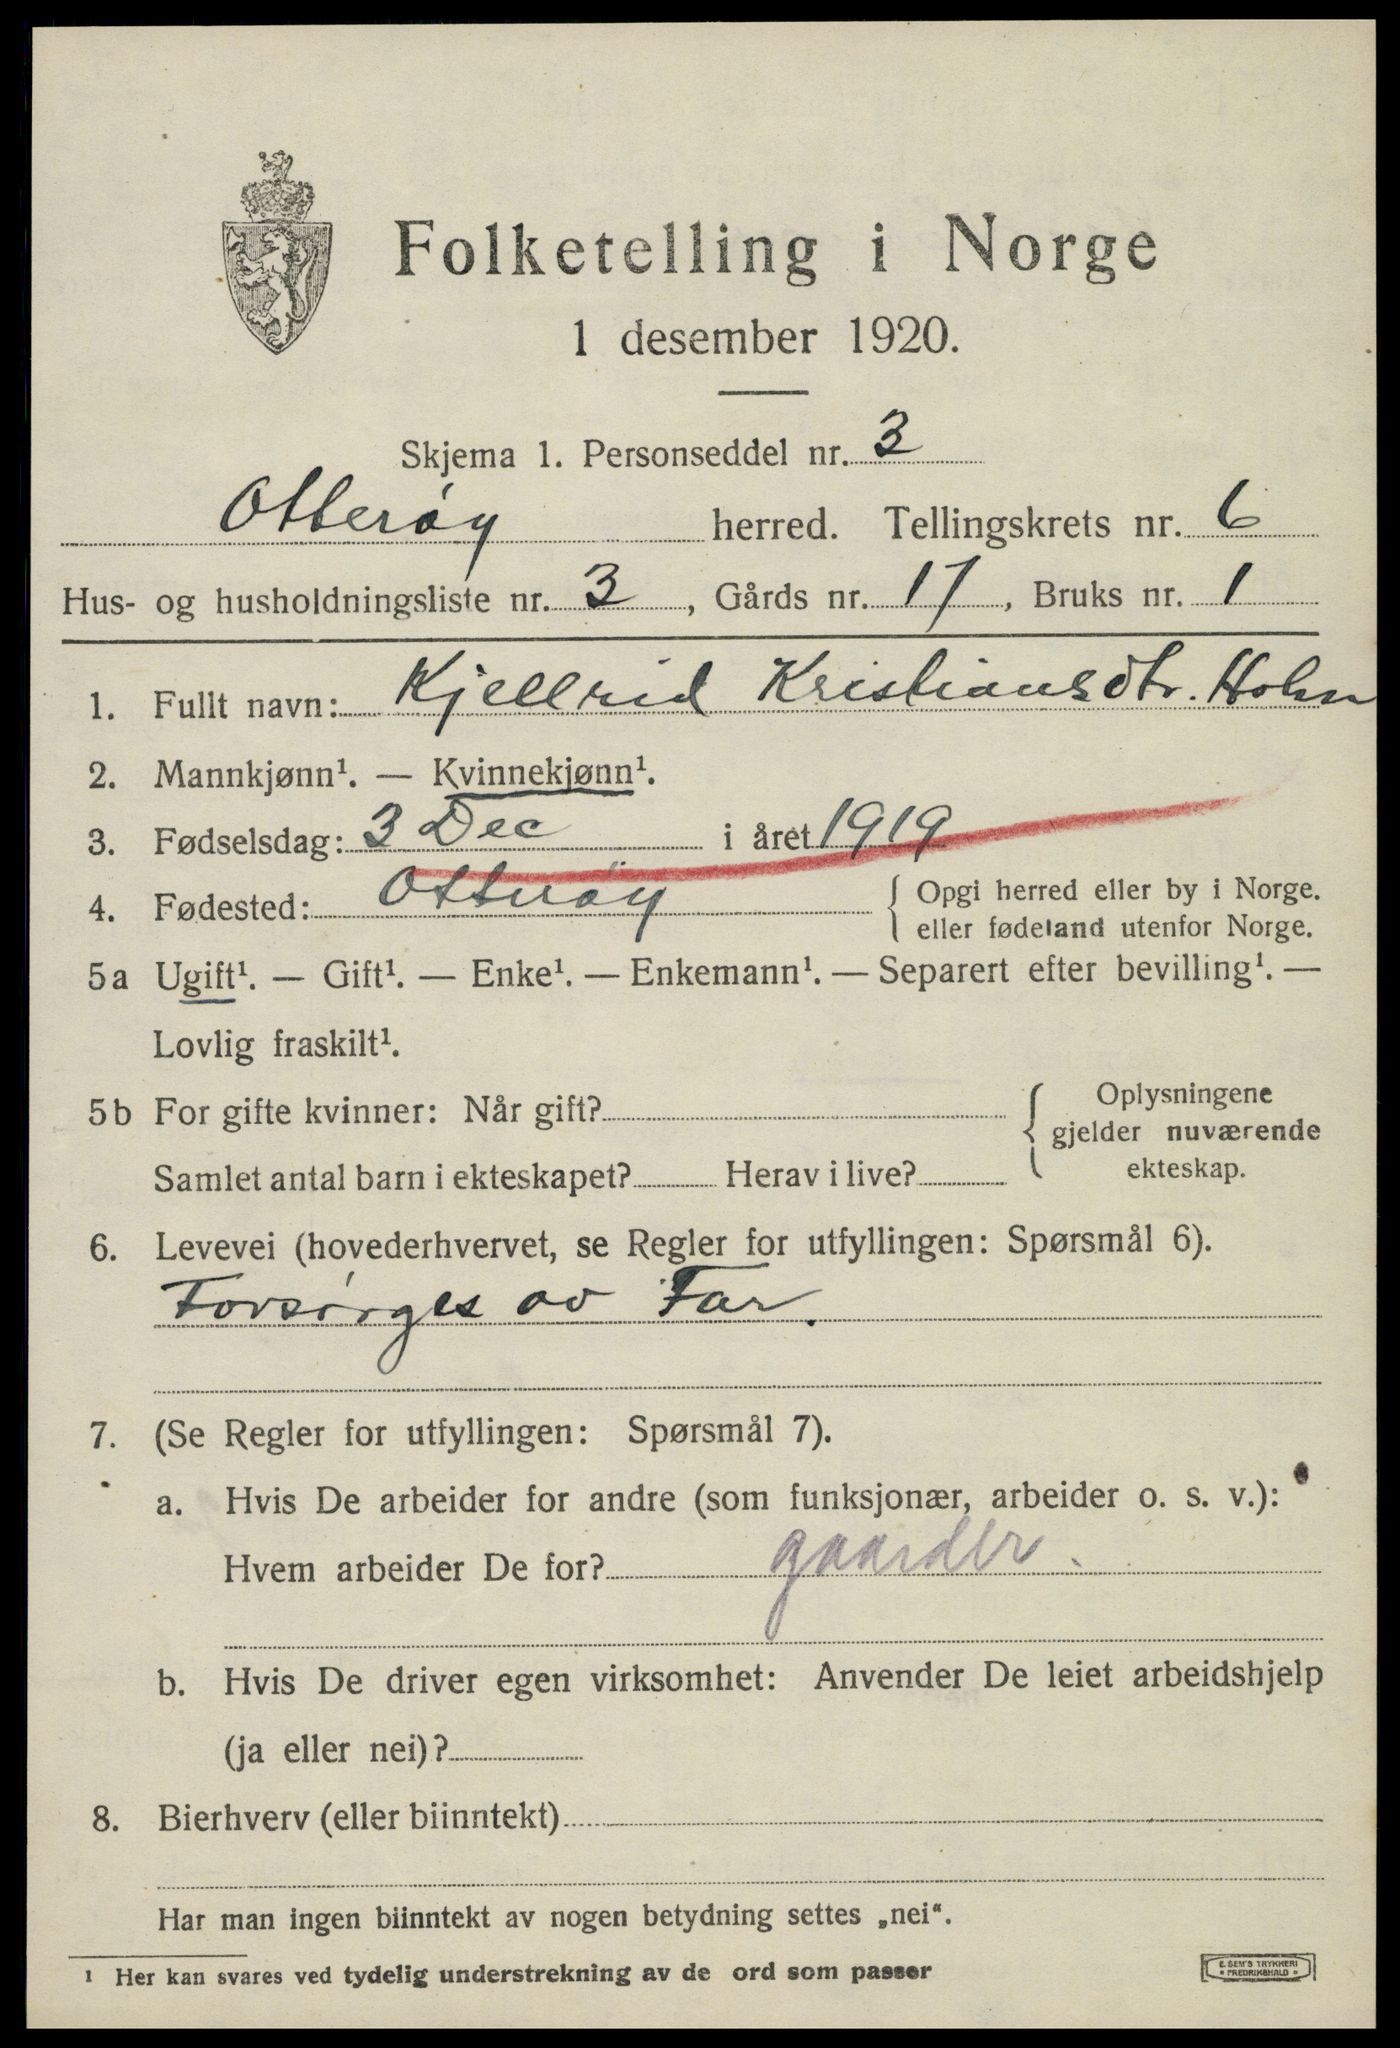 Folketelling i Norge
1 desember 1920.
Skjema 1. Personseddel nr. 3
Otterøy herred. Tellingskrets nr. 6
Hus- og husholdningsliste nr. 3, Gårds nr. 17, Bruks nr. 1
1. Fullt navn: Kjellrid Kristiansdtr. Holm
2. Mannkjønn¹. — Kvinnekjønn¹.
3. Fødselsdag: 3 Dec i året 1919
4. Fødested: Otterøy { Opgi herred eller by i Norge.
eller fødeland utenfor Norge.
5a Ugift¹. — Gift¹. — Enke¹. — Enkemann¹. — Separert efter bevilling¹. —
Lovlig fraskilt¹.
5b For gifte kvinner: Når gift? { Oplysningene
gjelder nuværende
Samlet antal barn i ekteskapet? Herav i live? ekteskap.
6. Levevei (hovederhvervet, se Regler for utfyllingen: Spørsmål 6).
Forsørges av Far.
7. (Se Regler for utfyllingen: Spørsmål 7).
a. Hvis De arbeider for andre (som funksjonær, arbeider o. s. v.):
Hvem arbeider De for? gaarder.
b. Hvis De driver egen virksomhet: Anvender De leiet arbeidshjelp
(ja eller nei)?
8. Bierhverv (eller biinntekt)
Har man ingen biinntekt av nogen betydning settes „nei“.
1 Her kan svares ved tydelig understrekning av de ord som passer
E. SEM'S TRYKKERI
• FREDRIKSHALD •